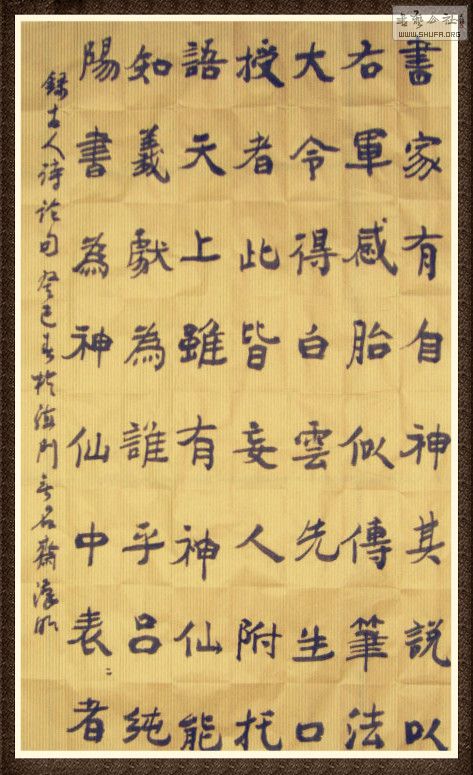 书艺公社
WWW.SHUFA.ORG
書家有自神其說以
右軍感胎似傳筆法
大令得白雲先生口
授者此皆妄人附托
語天上雖有神仙能
知羲獻為誰乎呂純
陽書為神仙中表〻者
錄古人詩論句癸巳春於海門無名齋